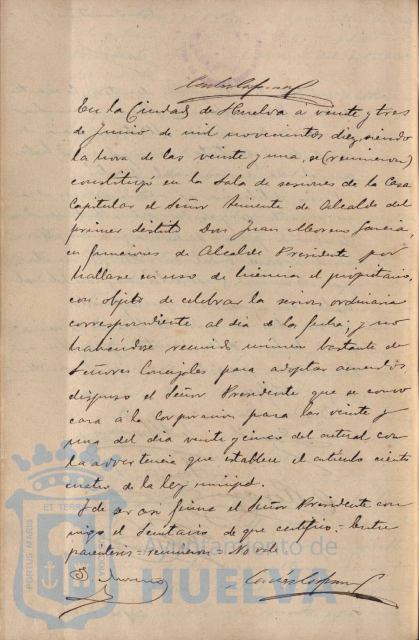 En la Ciudad de Huelva á veinte y tres
de Junio de mil novecientos diez, siendo
la hora de las veinte y una, se (reunieron)
constituyó en la Sala de sesiones de la Casa
Capitular el Señor Teniente de Alcalde del
primer distrito Don Juan Moreno García,
en funciones de Alcalde Presidente por
hallarse en uso de licencia el propietario,
con objeto de celebrar la sesion ordinaria
correspondiente al dia de la fecha; y no
habiéndose reunido número bastante de
Señores Concejales para adoptar acuerdos
dispuso el Señor Presidente que se convo
cara á la Corporacion para las veinte y
una del dia veinte y cinco del actual con
la advertencia que establece el artículo ciento
cuatro de la ley municipal.
I de ser así firma el Señor Presidente con
migo el Secretario de que certifico = Entre
parentesis = reunieron = No vale
Moreno
Ayuntamiento de
HUELVA
PORTUS MARIS
ET TERRAE